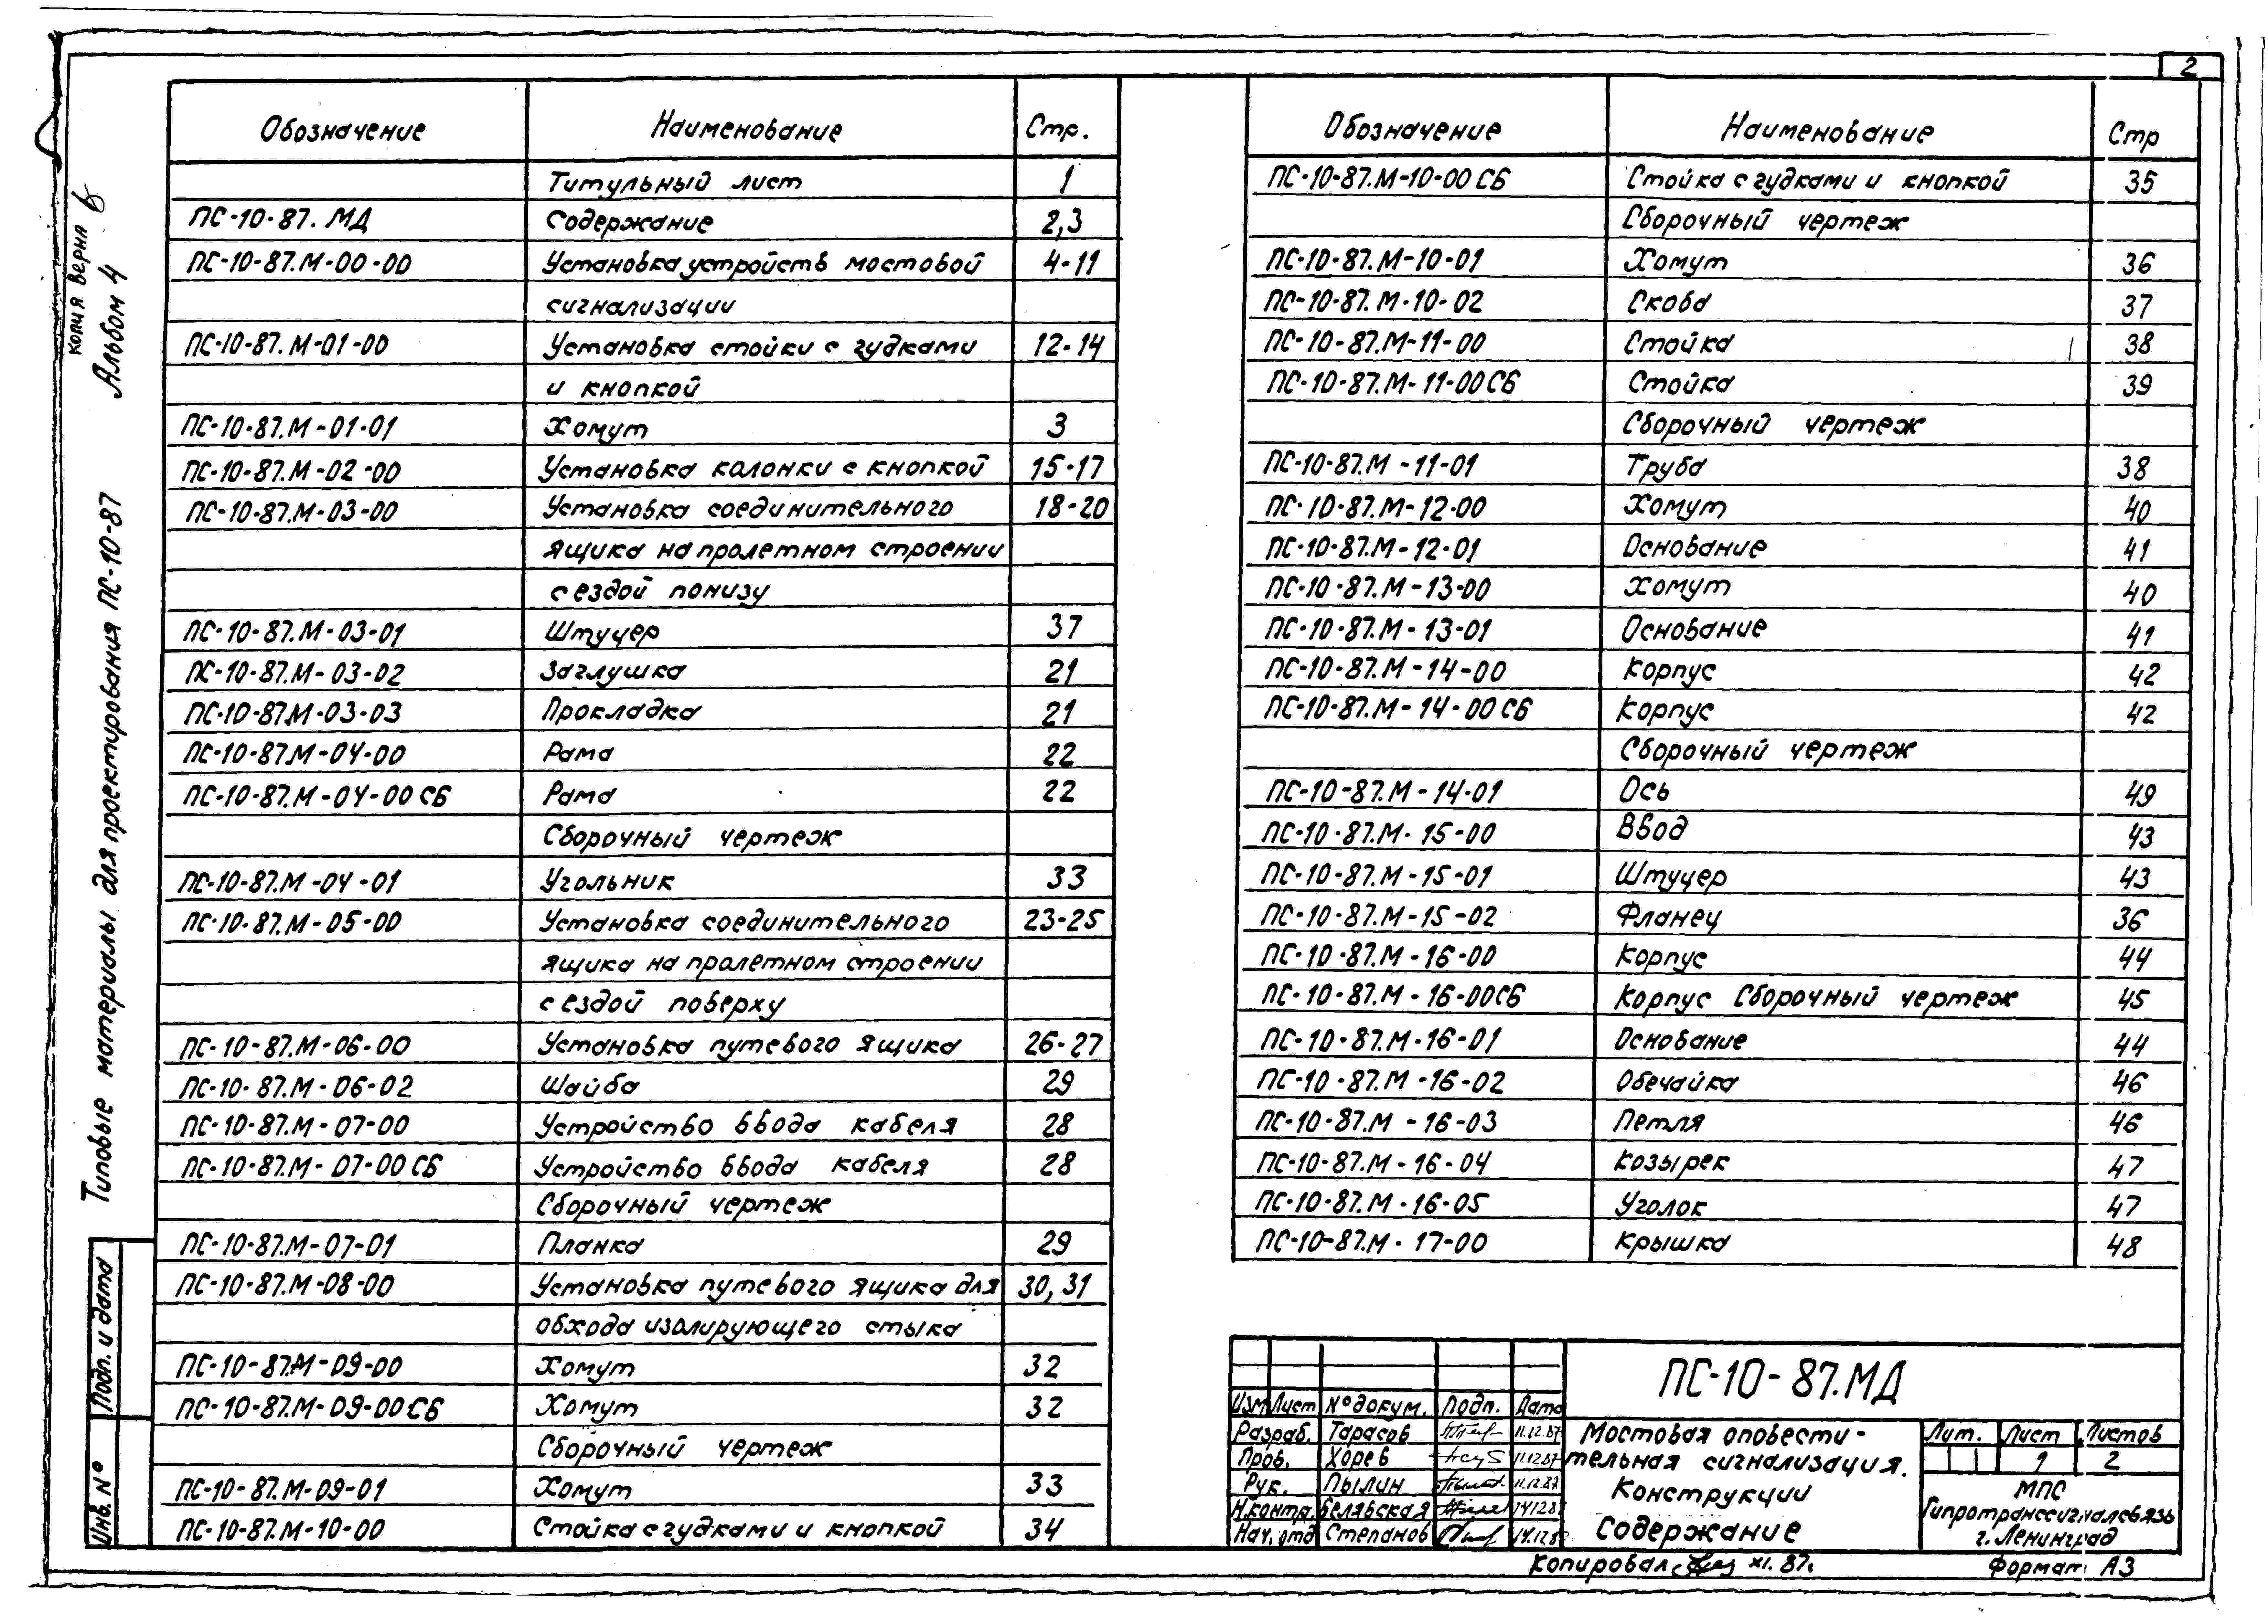 2
Обозначение Наименование Стр.
Титульный лист 1
ПС-10-87.МД Содержание 2,3
ПС-10-87.М-00-00 Установка устройств мостовой 4-11
сигнализации
ПС-10-87.М-01-00 Установка стойки с гудками 12-14
и кнопкой
ПС-10-87.М-01-01 Хомут 3
ПС-10-87.М-02-00 Установка колонки с кнопкой 15-17
ПС-10-87.М-03-00 Установка соединительного 18-20
ящика на пролетном строении
с ездой понизу
ПС-10-87.М-03-01 Штуцер 37
ПС-10-87.М-03-02 Заглушка 21
ПС-10-87.М-03-03 Прокладка 21
ПС-10-87.М-04-00 Рама 22
ПС-10-87.М-04-00СБ Рама 22
Сборочный чертеж
ПС-10-87.М-04-01 Угольник 33
ПС-10-87.М-05-00 Установка соединительного 23-25
ящика на пролетном строении
с ездой поверху
ПС-10-87.М-06-00 Установка путевого ящика 26-27
ПС-10-87.М-06-02 Шайба 29
ПС-10-87.М-07-00 Устройство ввода кабеля 28
ПС-10-87.М-07-00СБ Устройство ввода кабеля 28
Сборочный чертеж
ПС-10-87.М-07-01 Планка 29
ПС-10-87.М-08-00 Установка путевого ящика для 30,31
обхода изолирующего стыка
ПС-10-87.М-09-00 Хомут 32
ПС-10-87.М-09-00СБ Хомут 32
Сборочный чертеж
ПС-10-87.М-09-01 Хомут 33
ПС-10-87.М-10-00 Стойка с гудками и кнопкой 34
Обозначение Наименование Стр
ПС-10-87.М-10-00СБ Стойка с гудками и кнопкой 35
Сборочный чертеж
ПС-10-87.М-10-01 Хомут 36
ПС-10-87.М-10-02 Скоба 37
ПС-10-87.М-11-00 Стойка 38
ПС-10-87.М-11-00СБ Стойка 39
Сборочный чертеж
ПС-10-87.М-11-01 Труба 38
ПС-10-87.М-12-00 Хомут 40
ПС-10-87.М-12-01 Основание 41
ПС-10-87.М-13-00 Хомут 40
ПС-10-87.М-13-01 Основание 41
ПС-10-87.М-14-00 Корпус 42
ПС-10-87.М-14-00СБ Корпус 42
Сборочный чертеж
ПС-10-87.М-14-01 Ось 49
ПС-10-87.М-15-00 Ввод 43
ПС-10-87.М-15-01 Штуцер 43
ПС-10-87.М-15-02 Фланец 36
ПС-10-87.М-16-00 Корпус 44
ПС-10-87.М-16-00СБ Корпус Сборочный чертеж 45
ПС-10-87.М-16-01 Основание 44
ПС-10-87.М-16-02 Обечайка 46
ПС-10-87.М-16-03 Петля 46
ПС-10-87.М-16-04 Козырек 47
ПС-10-87.М-16-05 Уголок 47
ПС-10-87.М-17-00 Крышка 48
Копия верна
Альбом 4
Типовые материалы для проектирования ПС-10-87
Подп. и дата
Инв. №
ПС-10-87.МД
Изм Лист № докум. Подп. Дата
Разраб. Тарасов 11.12.87
Пров. Хорев 11.12.87
Рук. Пылин 11.12.87
Н.контр. Белявская 14.12.87
Нач. отд Степанов 14.12.8
Мостовая оповести-
тельная сигнализация.
Конструкции
Содержание
Лит. Лист Листов
1 2
МПС
Гипротранссигналсвязь
г. Ленинград
Копировал XI. 87г.
Формат А3